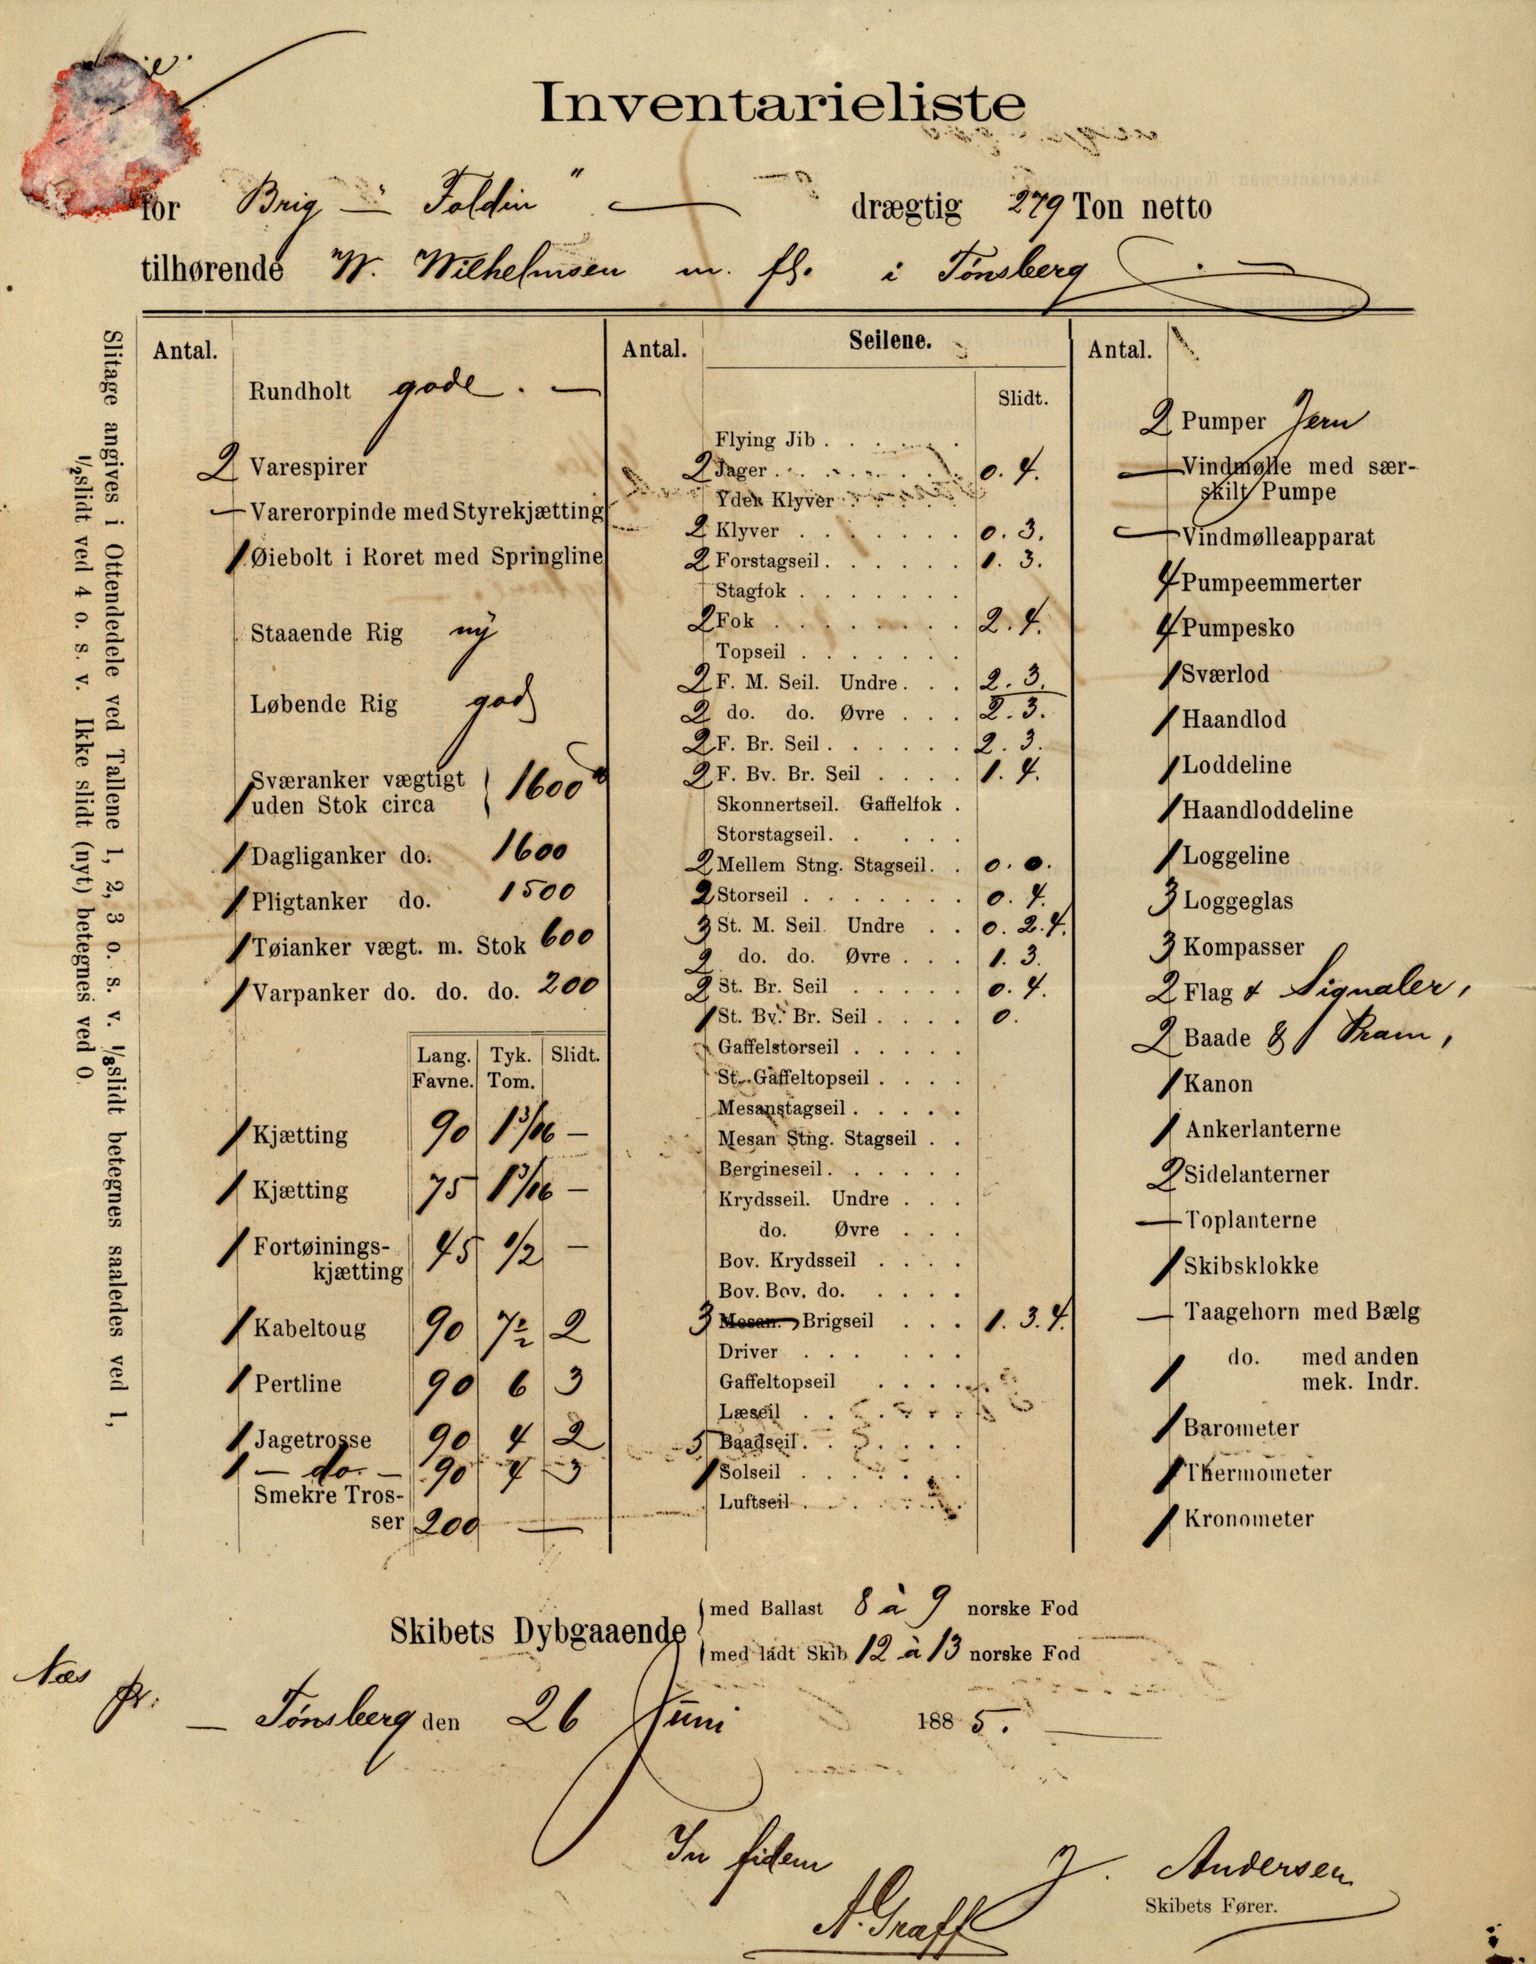 Inventarieliste
for Brig "Foldin" drægtig 279 Ton netto
tilhørende W. Wilhelmsen m. fl. i Tønsberg
Slitage angives i Ottendedele ved Tallene 1, 2, 3 o. s. v. 1/8 slidt betegnes saaledes ved 1,
1/2 slidt ved 4 o. s. v. Ikke slidt (nyt) betegnes ved 0.
Antal.
Rundholt gode. —
2 Varespirer
— Varerorpinde med Styrekjætting
1 Øiebolt i Roret med Springline
Staaende Rig ny
Løbende Rig god
Sværanker vægtigt
1 uden Stok circa } 1600
1 Dagliganker do. 1600
1 Pligtanker do. 1500
1 Tøianker vægt. m. Stok 600
1 Varpanker do. do. do. 200
Lang. Tyk. Slidt.
Favne. Tom.
1 Kjætting 90 1 3/16 —
1 Kjætting 75 1 3/16 —
1 Fortøinings-
kjætting 45 1/2 —
1 Kabeltoug 90 7 1/2 2
1 Pertline 90 6 3
1 Jagetrosse 90 4 2
1 — do. — 90 4 3
Smekre Tros-
ser 200 —
Antal. Seilene.
Slidt.
Flying Jib . . . . .
2 Jager . . . . . . . 0. 4.
Yder Klyver . . . . .
2 Klyver . . . . . . . 0. 3.
2 Forstagseil . . . . . . 1. 3.
Stagfok . . . . . . .
2 Fok . . . . . . . . 2. 4.
Topseil . . . . . . .
2 F. M. Seil. Undre . . . 2. 3.
2 do. do. Øvre . . . 2. 3.
2 F. Br. Seil . . . . . . 2. 3.
2 F. Bv. Br. Seil . . . . 1. 4.
Skonnertseil. Gaffelfok .
Storstagseil. . . . .
2 Mellem Stng. Stagseil. . 0. 0.
2 Storseil . . . . . . . 0. 4.
3 St. M. Seil. Undre . . 0. 2. 4.
2 do. do. Øvre . . . 1. 3.
2 St. Br. Seil . . . . . 0. 4.
1 St. Bv. Br. Seil . . . . 0.
Gaffelstorseil . . . . .
St. Gaffeltopseil . . . .
Mesanstagseil . . . . .
Mesan Stng. Stagseil . .
Bergineseil . . . . . .
Krydsseil. Undre . . .
do. Øvre . . .
Bov. Krydsseil . . . .
Bov. Bov. do. . . . .
3 Mesan. Brigseil . . . 1. 3. 4.
Driver . . . . . .
Gaffeltopseil . . . .
Læseil . . . . . .
5 Baadseil . . . . . .
1 Solseil . . . . . . .
Luftseil . . . . . .
Antal.
2 Pumper Jern
— Vindmølle med sær-
skilt Pumpe
— Vindmølleapparat
4 Pumpeemmerter
4 Pumpesko
1 Sværlod
1 Haandlod
1 Loddeline
1 Haandloddeline
1 Loggeline
3 Loggeglas
3 Kompasser
2 Flag & Signaler,
2 Baade & 1 Pram,
1 Kanon
1 Ankerlanterne
2 Sidelanterner
— Toplanterne
1 Skibsklokke
— Taagehorn med Bælg
1 do. med anden
mek. Indr.
1 Barometer
1 Thermometer
1 Kronometer
Skibets Dybgaaende
med Ballast 8 à 9 norske Fod
med ladt Skib 12 à 13 norske Fod
Næs pr. — Tønsberg den 26 Juni 1885. —
In fidem
A. Graff
J. Andersen
Skibets Fører.